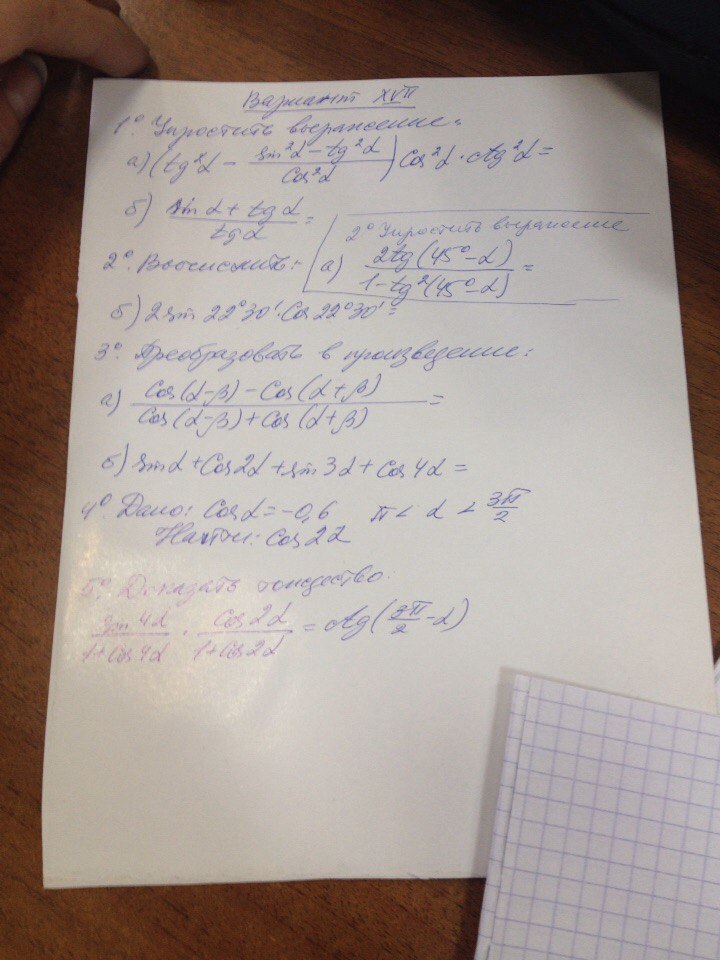 Вариант XVII
1° Упростить выражение:
а) (tg²α - (sin²α - tg²α)/cos²α) cos²α · ctg²α =
б) (sin α + tg α)/tg α =
2° Упростить выражение
а) 2tg(45° - α)/(1 - tg²(45° - α)) =
2°. Вычислить:
б) 2 sin 22°30' · cos 22°30' =
3°. Преобразовать в произведение:
а) (cos(α-β) - cos(α+β))/(cos(α-β) + cos(α+β)) =
б) sin α + cos 2α + sin 3α + cos 4α =
4°. Дано: cos α = -0,6 π < α < 3π/2
Найти: cos 2α
5°. Доказать тождество:
sin 4α/(1+cos 4α) · cos 2α/(1+cos 2α) = ctg(3π/2 - α)